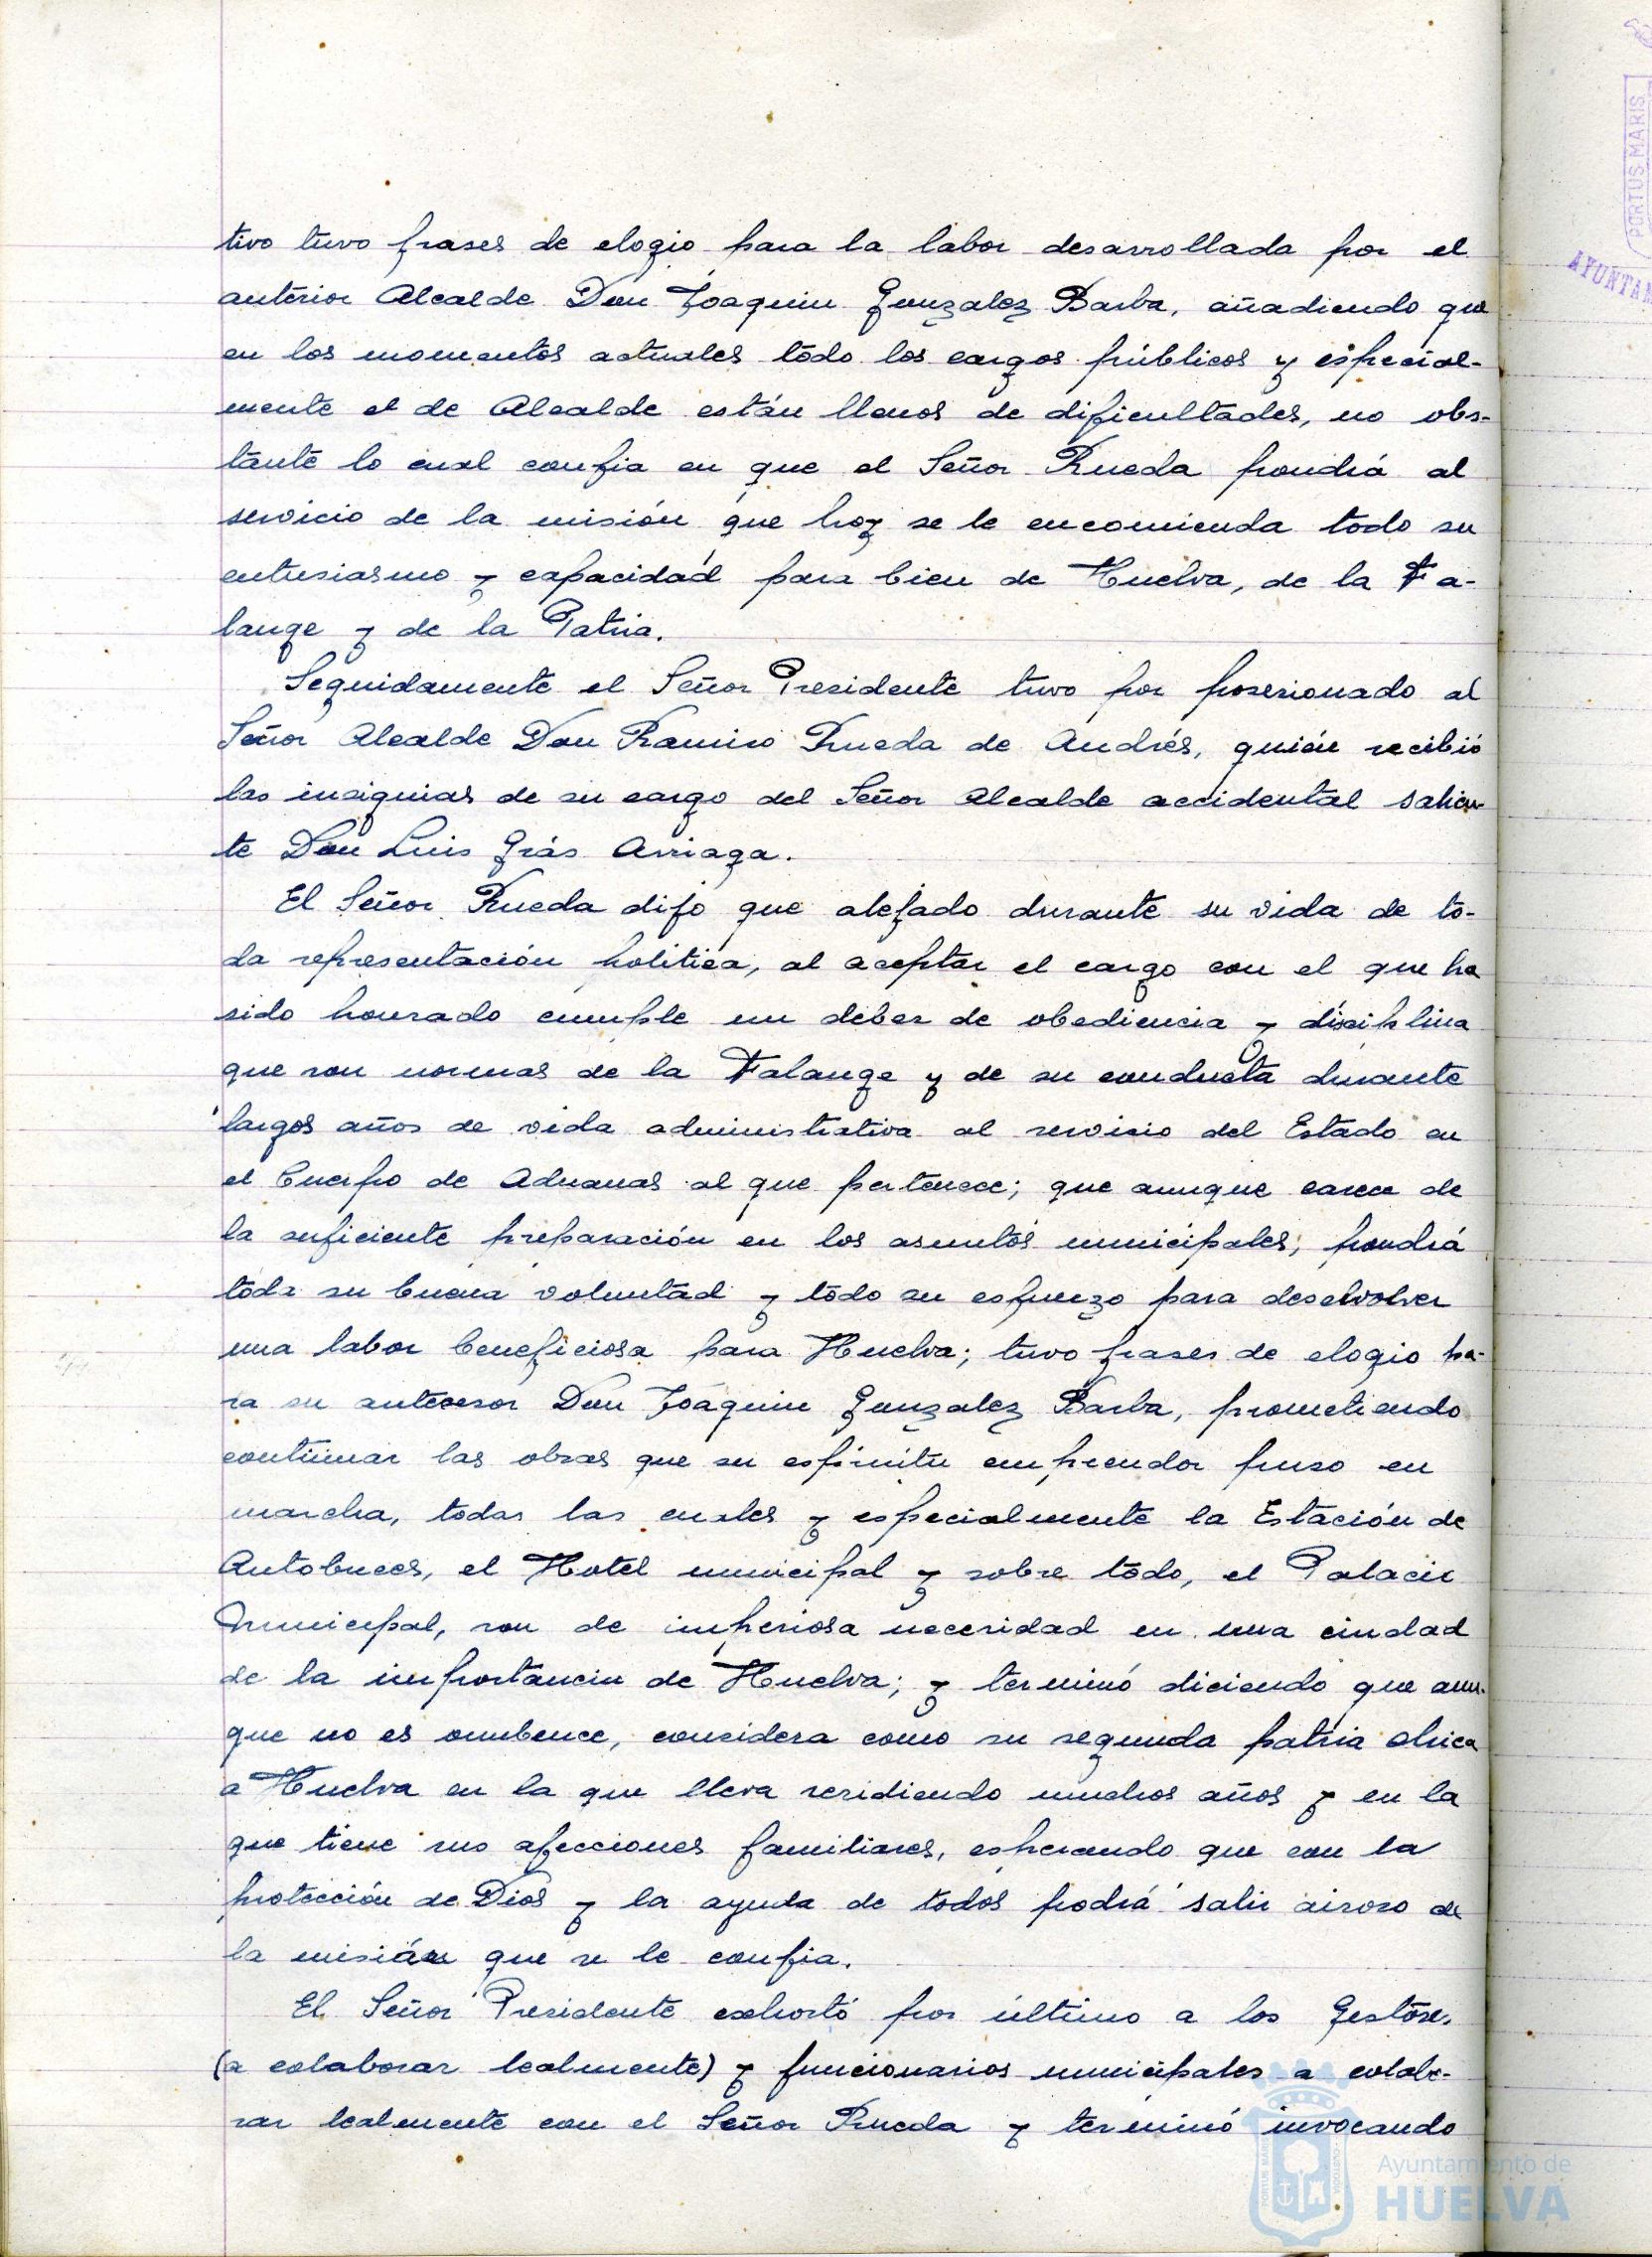 tivo tuvo frases de elogio para la labor desarrollada por el
anterior Alcalde Don Joaquin Gonzalez Barba, añadiendo que
en los momentos actuales todo los cargos públicos y especial-
mente el de Alcalde están llenos de dificultades, no obs-
tante lo cual confia en que el Señor Rueda pondrá al
servicio de la misión que hoy se le encomienda todo su
entusiasmo y capacidad para bien de Huelva, de la Fa-
lange y de la Patria.
Seguidamente el Señor Presidente tuvo por posesionado al
Señor Alcalde Don Ramiro Rueda de Andrés, quién recibió
las insignias de su cargo del Señor Alcalde accidental salien-
te Don Luis Grás Arriaga.
El Señor Rueda dijo que alejado durante su vida de to-
da representación politica, al aceptar el cargo con el que ha
sido honrado cumple un deber de obediencia y disciplina
que son normas de la Falange y de su conducta durante
largos años de vida administrativa al servicio del Estado en
el Cuerpo de Aduanas al que pertenece; que aunque carece de
la suficiente preparación en los asuntos municipales, pondrá
toda su buena voluntad y todo su esfuerzo para deselvolver
una labor beneficiosa para Huelva; tuvo frases de elogio pa-
ra su antecesor Don Joaquin Gonzalez Barba, prometiendo
continuar las obras que su espiritu emprendor puso en
marcha, todas las cuales y especialmente la Estación de
Autobuces, el Hotel municipal y sobre todo, el Palacio
Municipal, son de imperiosa necesidad en una ciudad
de la importancia de Huelva; y terminó diciendo que aun-
que no es onubence, considera como su segunda patria chica
a Huelva en la que lleva residiendo muchos años y en la
que tiene sus afecciones familiares, esperando que con la
protección de Dios y la ayuda de todos podrá salir airoso de
la misión que se le confia.
El Señor Presidente exhortó por último a los Gestores
(a colaborar lealmente) y funcionarios municipales a colabo-
rar lealmente con el Señor Rueda y terminó invocando
Ayuntamiento de
HUELVA
PORTUS MARIS
AYUNTAM